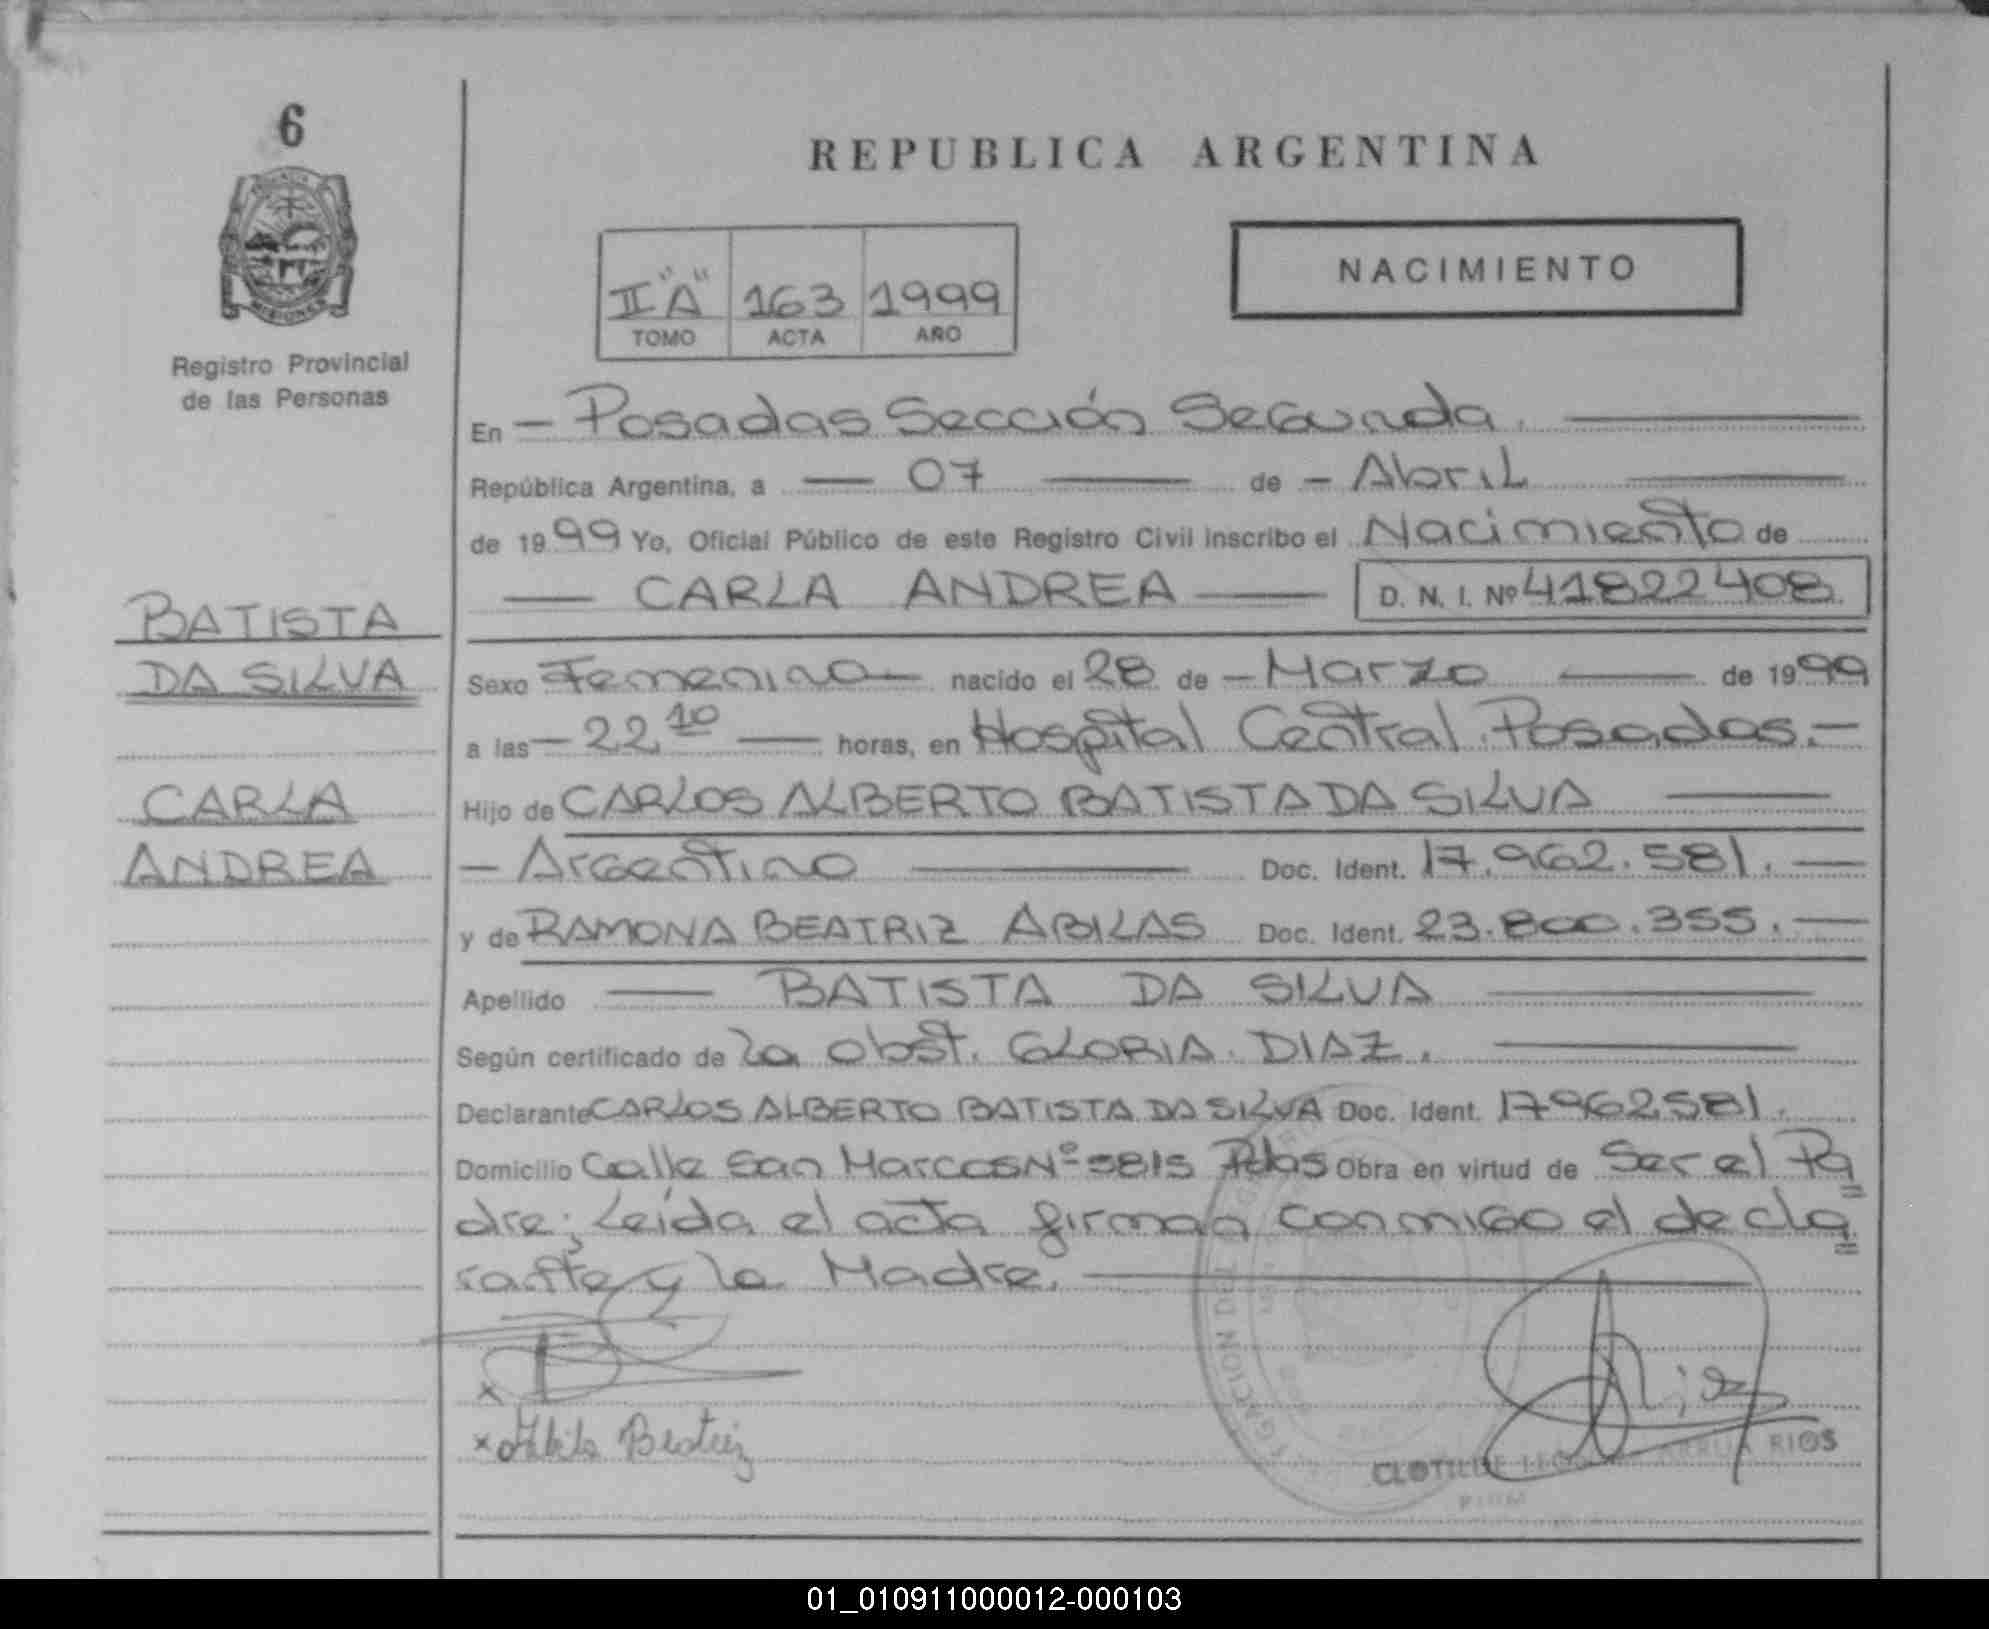 6
REPUBLICA ARGENTINA
NACIMIENTO
II "A" 163 1999
TOMO ACTA AÑO
Registro Provincial
de las Personas
MISIONES
En - Posadas Sección Segunda.
República Argentina, a 07 de - Abril
de 1999 Yo, Oficial Público de este Registro Civil inscribo el Nacimiento de
CARLA ANDREA D. N. I. Nº 41822408.
BATISTA
DA SILVA
CARLA
ANDREA
Sexo Femenino nacido el 28 de - Marzo de 1999
a las - 22,10 horas, en Hospital Central Posadas.-
Hijo de CARLOS ALBERTO BATISTA DA SILVA
- Argentino Doc. Ident. 17.962.581.
y de RAMONA BEATRIZ ABILAS Doc. Ident. 23.800.355.
Apellido BATISTA DA SILVA
Según certificado de la obst. GLORIA DIAZ.
Declarante CARLOS ALBERTO BATISTA DA SILVA Doc. Ident. 17962581.
Domicilio Calle San Marcos Nº 5815 Pdas Obra en virtud de Ser el Pa=
dre; Leída el acta firman conmigo el decla=
rante y la Madre.
x
x Beatriz
CLOTILDE RIOS
01_010911000012-000103